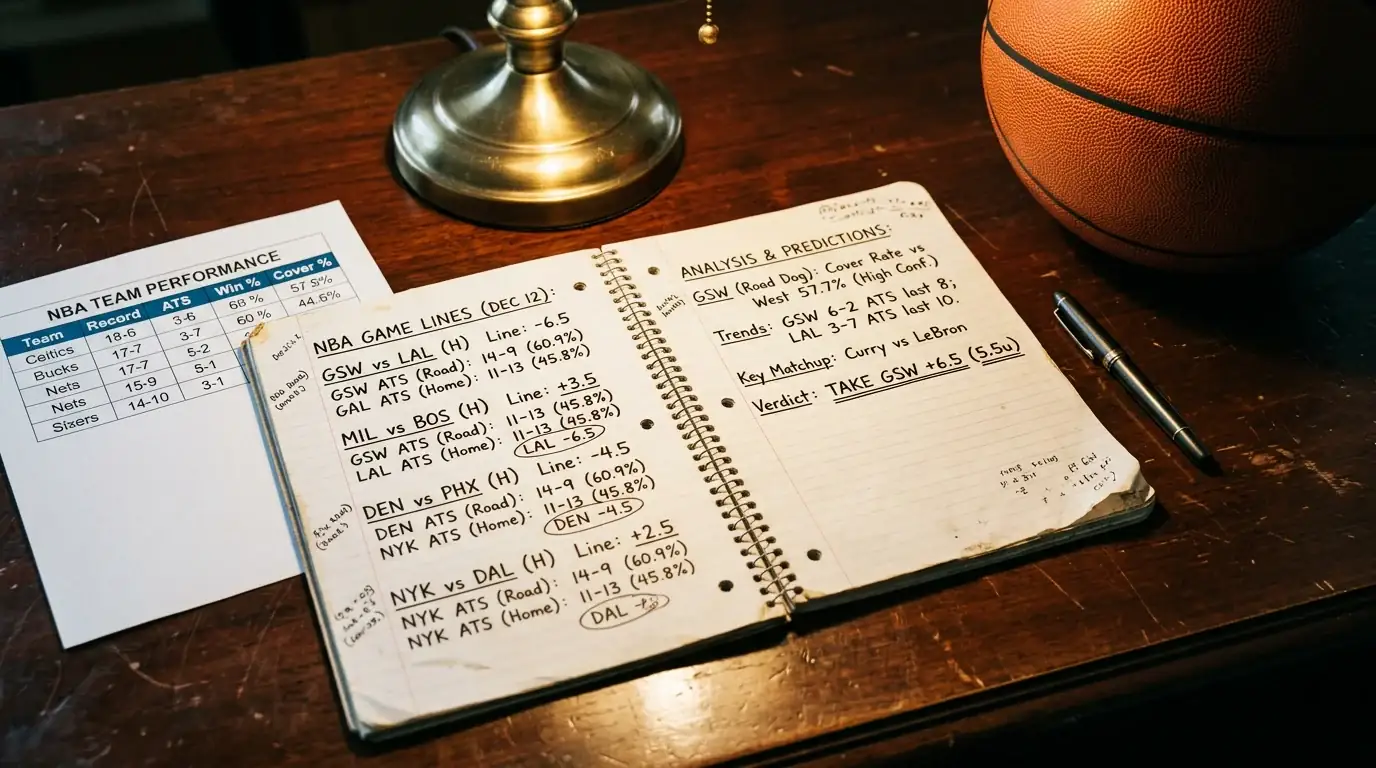 NBA TEAM PERFORMANCE
Team Record ATS Win % Cover %
Celtics 18-6 3-6 68 %
Bucks 17-7 3-7 60 % 44.6%
Nets 17-7 5-2
Nets 15-9 5-1
Sixers 14-10 3-1
NBA GAME LINES (DEC 12):
GSW vs LAL (H) Line: -6.5
GSW ATS (Road): 14-9 (60.9%)
GAL ATS (Home): 11-13 (45.8%)
MIL vs BOS (H) Line: +3.5
GSW ATS (Road): 11-13 (45.8%)
LAL ATS (Home): 11-13 (45.8%)
LAL -6.5
DEN vs PHX (H) Line: -4.5
DEN ATS (Road): 14-9 (60.9%)
NYK ATS (Home): 11-13 (45.8%)
DEN -4.5
NYK vs DAL (H) Line: +2.5
NYK ATS (Road): 14-9 (60.9%)
NYK ATS (Home): 11-13 (45.8%)
DAL
ANALYSIS & PREDICTIONS:
GSW (Road Dog): Cover Rate vs
West 57.7% (High Conf.)
Trends: GSW 6-2 ATS last 8;
LAL 3-7 ATS last 10.
Key Matchup: Curry vs LeBron
Verdict: TAKE GSW +6.5 (5.5u)